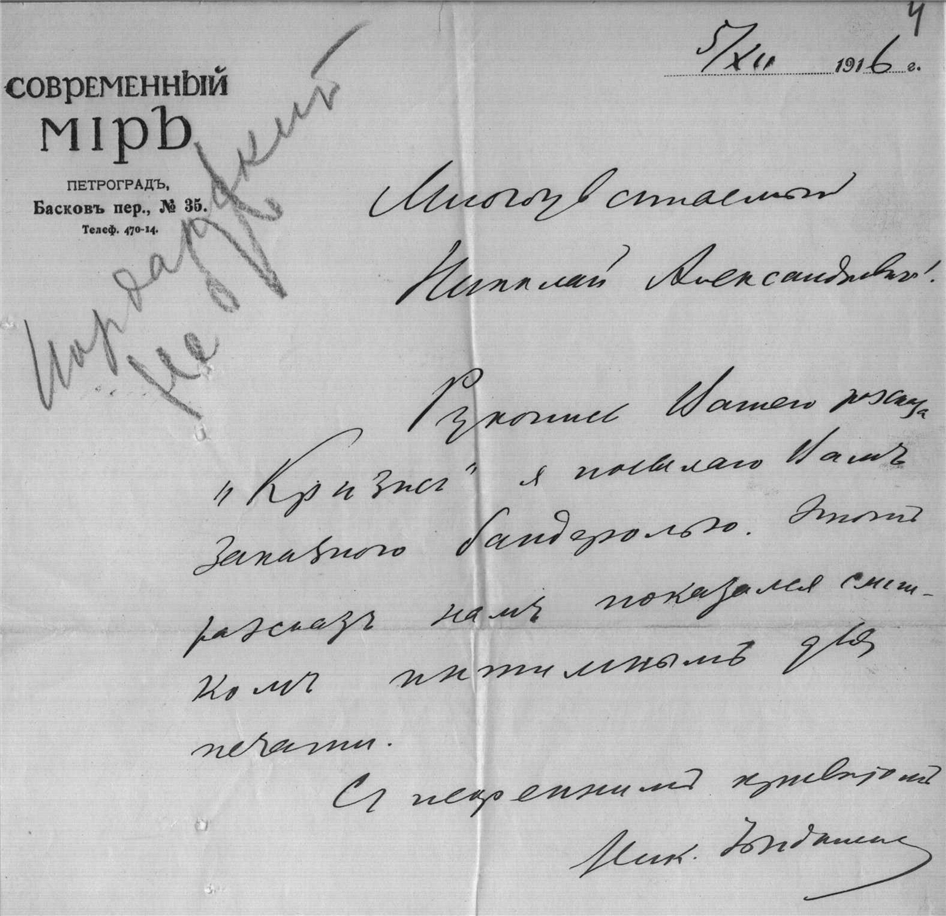 4
5/XII 1916 г.
СОВРЕМЕННЫЙ
МІРЪ
ПЕТРОГРАДЪ,
Басковъ пер., № 35.
Телеф. 470-14.
Многоуважаемый
Николай Александрович!
Рукопись Вашего разсказа
"Кризис" я посылаю Вамъ
заказною бандеролью. Этотъ
разсказъ намъ показался слиш-
комъ интимнымъ для
печати.
Съ искреннимъ приветомъ
Ник. Іорданскій
Иорданский
Ник.